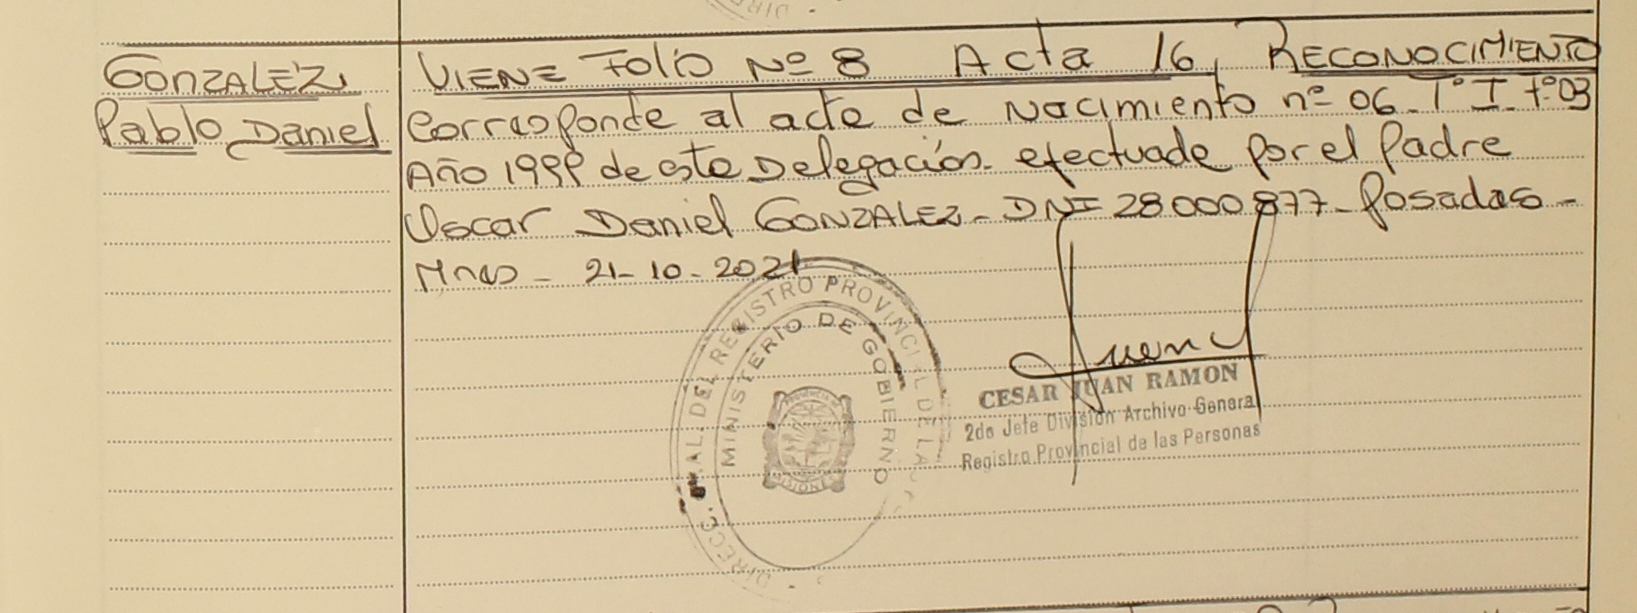 GONZALEZ
Pablo Daniel
VIENE Folio Nº 8 Acta 16, RECONOCIMIENTO
Corresponde al acta de Nacimiento nº 06 - Tº I - fº 03
Año 1999 de esta Delegación - efectuada por el Padre
Oscar Daniel GONZALEZ - DNI 28000877 - Posadas -
Mnes - 21-10-2021
DIRECC. GRAL. DEL REGISTRO PROVINCIAL DE LA
MINISTERIO DE GOBIERNO
PROVINCIA DE
MISIONES
CESAR JUAN RAMON
2do Jefe División Archivo General
Registro Provincial de las Personas